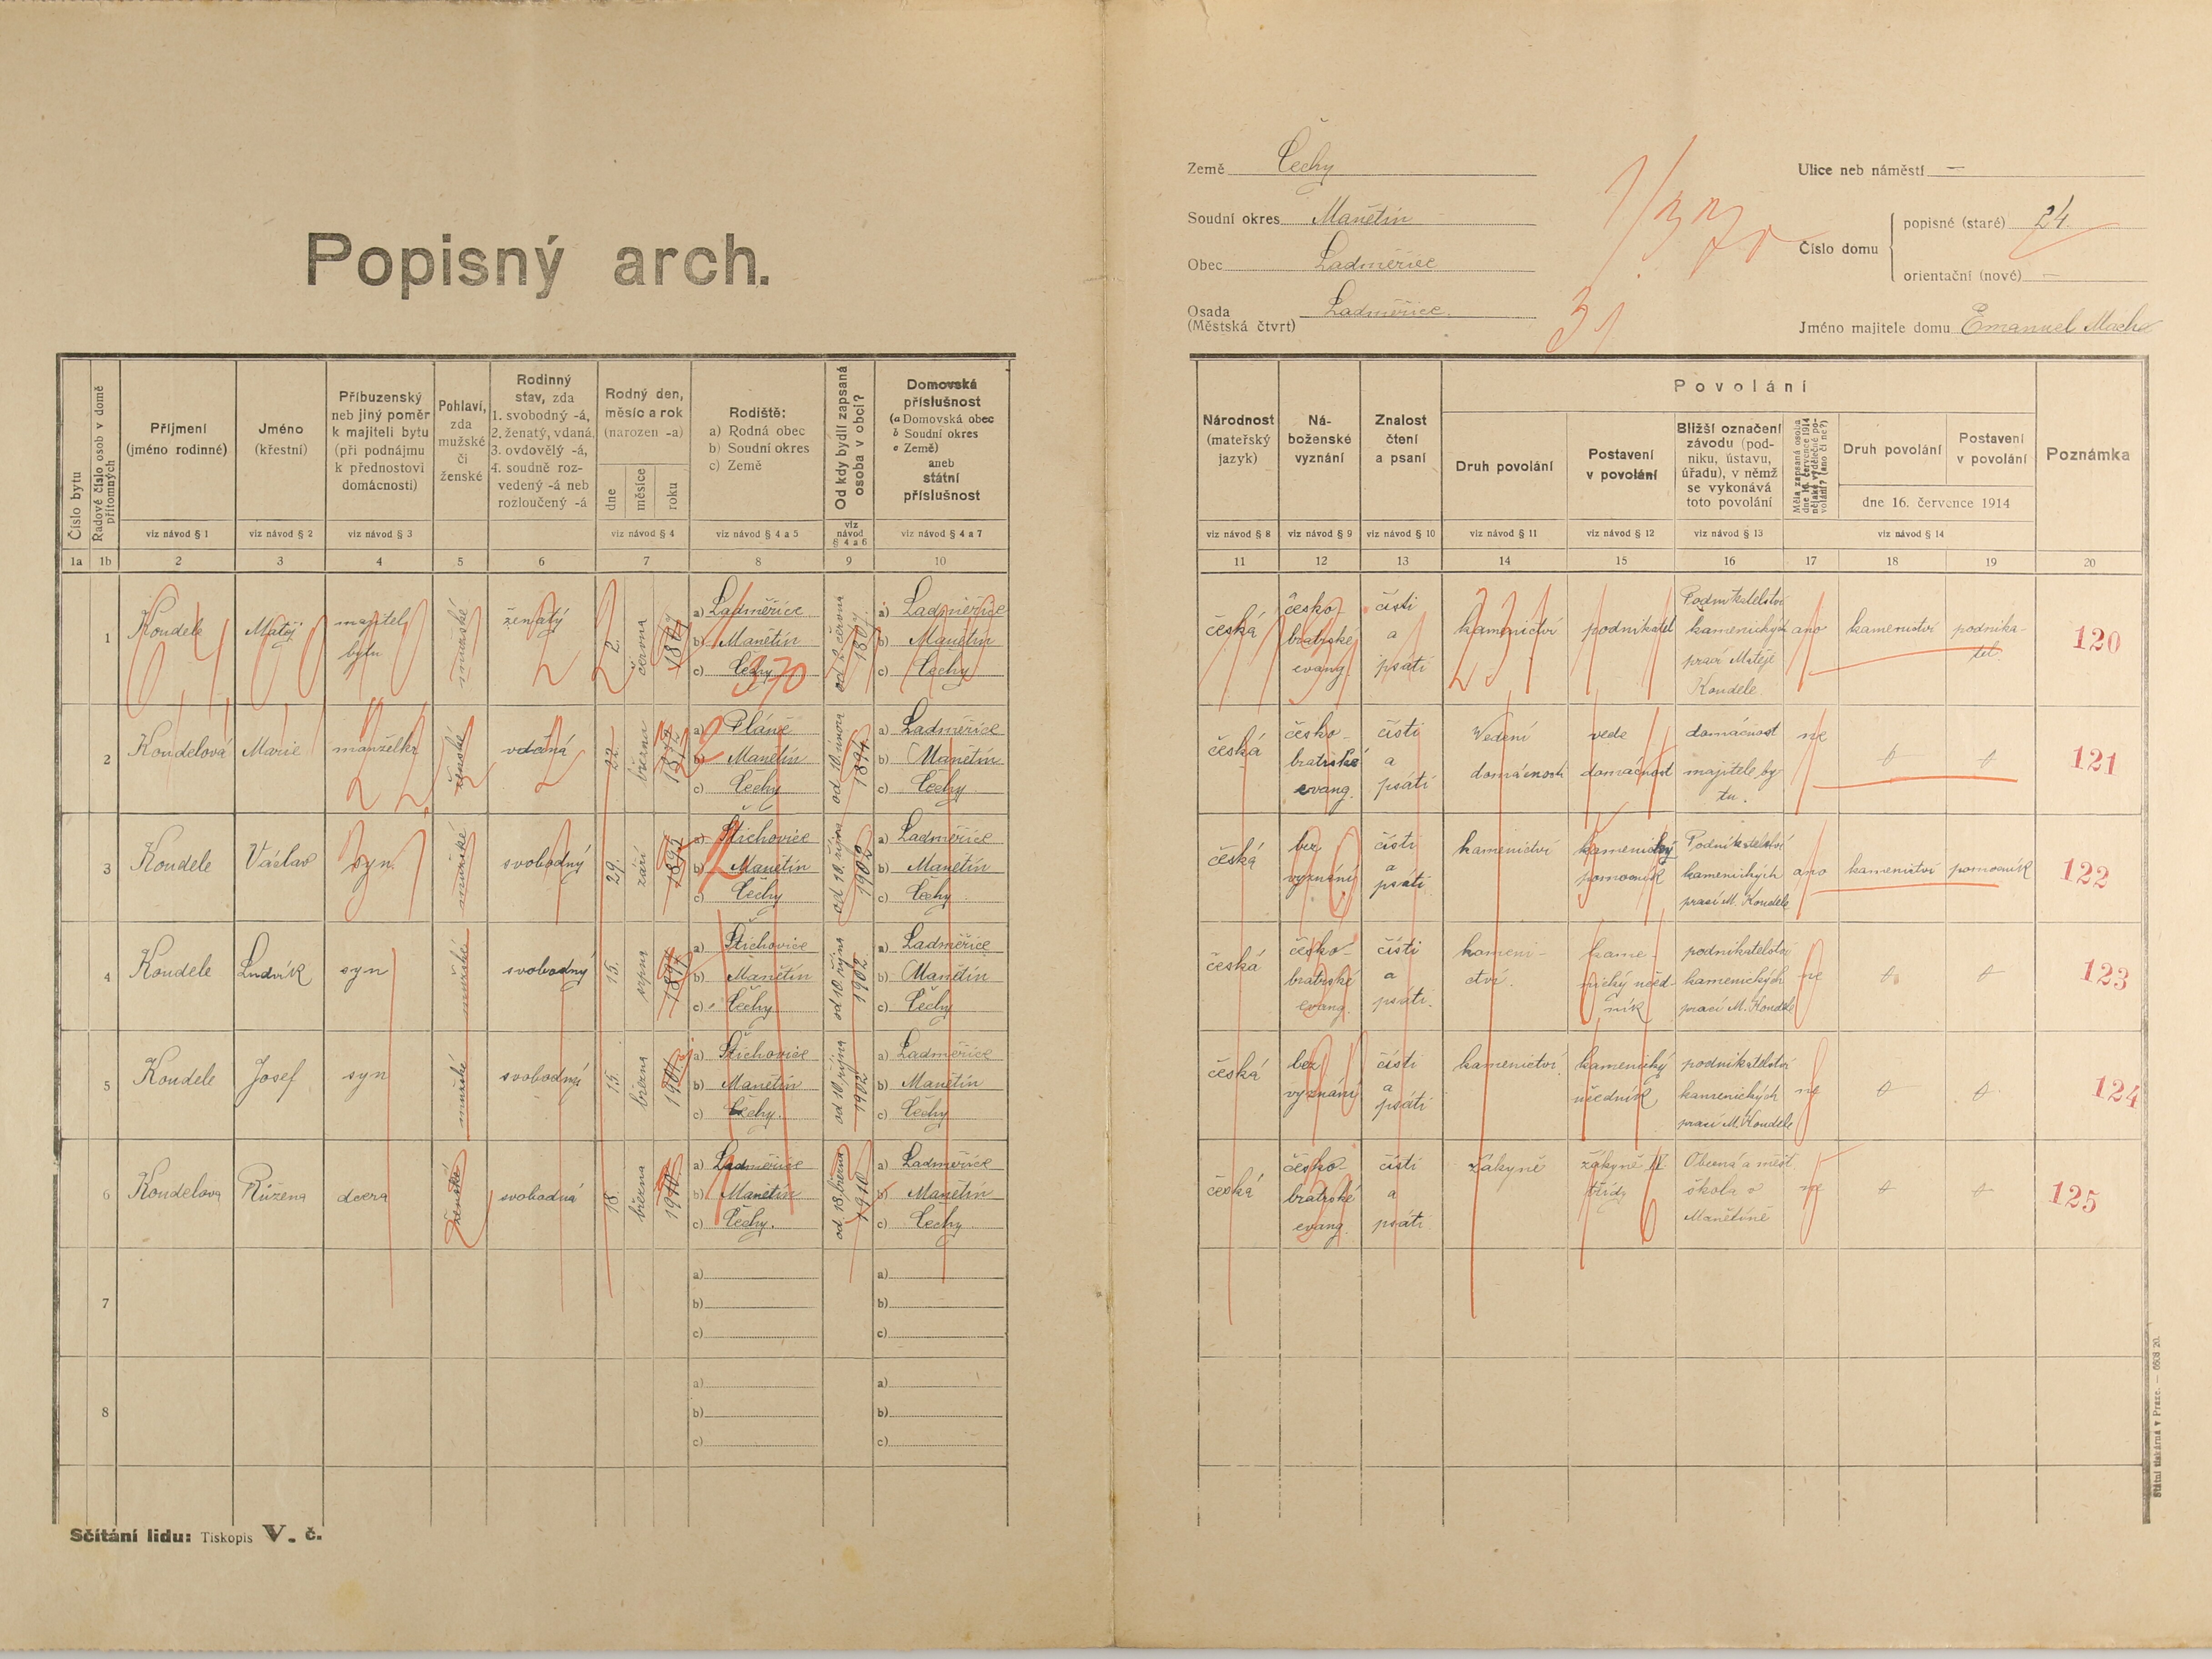 Popisný arch.
Země Čechy
Soudní okres Manětín
Obec Ladměřice
Osada
(Městská čtvrt) Ladměřice.
Ulice neb náměstí —
Číslo domu
popisné (staré) 24.
orientační (nové) —
Jméno majitele domu Emanuel Macho
31
Číslo bytu
Řadové číslo osob v domě přítomných
Příjmení
(jméno rodinné)
viz návod § 1
Jméno
(křestní)
viz návod § 2
Příbuzenský
neb jiný poměr
k majiteli bytu
(při podnájmu
k přednostovi
domácnosti)
viz návod § 3
Pohlaví,
zda
mužské
či
ženské
Rodinný
stav, zda
1. svobodný -á,
2. ženatý, vdaná,
3. ovdovělý -á,
4. soudně roz-
vedený -á neb
rozloučený -á
Rodný den,
měsíc a rok
(narozen -a)
dne
měsíce
roku
viz návod § 4
Rodiště:
a) Rodná obec
b) Soudní okres
c) Země
viz návod § 4 a 5
Od kdy bydlí zapsaná
osoba v obci?
viz
návod
§ 4 a 6
Domovská
příslušnost
(a Domovská obec
b Soudní okres
c Země)
aneb
státní
příslušnost
viz návod § 4 a 7
Národnost
(mateřský
jazyk)
viz návod § 8
Ná-
boženské
vyznání
viz návod § 9
Znalost
čtení
a psaní
viz návod § 10
Povolání
Druh povolání
viz návod § 11
Postavení
v povolání
viz návod § 12
Bližší označení
závodu (pod-
niku, ústavu,
úřadu), v němž
se vykonává
toto povolání
viz návod § 13
Měla zapsaná osoba
dne 16. července 1914
nějaké výdělečné po-
volání? (ano či ne?)
Druh povolání
Postavení
v povolání
dne 16. července 1914
viz návod § 14
Poznámka
1a 1b 2 3 4 5 6 7 8 9 10 11 12 13 14 15 16 17 18 19 20
1 Koudele Matěj
majitel
bytu
mužské
ženatý
2. června
a) Ladměřice
b) Manětín
c) Čechy
370
od 2. června
a) Ladměřice
b) Manětín
c) Čechy
česká
česko-
bratrské
evang.
čísti
a
psáti
kamenictví
podnikatel
Podnikatelství
kamenických
prací Matěje
Koudele.
ano
kamenictví
podnika-
tel
120
2 Koudelová Marie manželka ženské vdaná
22. března
a) Pláně
b) Manětín
c) Čechy
od 10. února
1894
a) Ladměřice
b) Manětín
c) Čechy
česká
česko-
bratrské
evang.
čísti
a
psáti
Vedení
domácnosti
vede
domácnost
domácnost
majitele by-
tu.
ne
121
3 Koudele Václav syn. mužské svobodný
29. září
a) Štichovice
b) Manětín
c) Čechy
od 10. října
1902
a) Ladměřice
b) Manětín
c) Čechy
česká
bez
vyznání
čísti
a
psáti
kamenictví
kamenický
pomocník
Podnikatelství
kamenických
prací M. Koudele
ano
kamenictví
pomocník
122
4 Koudele Ludvík syn mužské svobodný
15. srpna
a) Štichovice
b) Manětín
c) Čechy
od 10. října
1902
a) Ladměřice
b) Manětín
c) Čechy
česká
česko-
bratrské
evang.
čísti
a
psáti.
kameni-
ctví.
kame-
nický učed-
ník
podnikatelství
kamenických
prací M. Koudele
ne
123
5 Koudele Josef syn mužské svobodný
15. března 1901
a) Štichovice
b) Manětín
c) Čechy.
od 10. října
1902
a) Ladměřice
b) Manětín
c) Čechy
česká
bez
vyznání
čísti
a
psáti
kamenictví.
kamenický
učedník
podnikatelství
kamenických
prací M. Koudele
ne
124
6 Koudelova Růžena dcera ženské svobodná
18. března 1910
a) Ladměřice
b) Manětín
c) Čechy.
od 18. března
1910
a) Ladměřice
b) Manětín
c) Čechy
česká
česko-
bratrské
evang.
čísti
a
psáti.
žákyně
žákyně II.
třídy
Obecná a měšt.
škola v
Manětíně
ne
125
7
a)
b)
c)
a)
b)
c)
8
a)
b)
c)
a)
b)
c)
Sčítání lidu: Tiskopis V. č.
Státní tiskárna v Praze. — 6608 20.